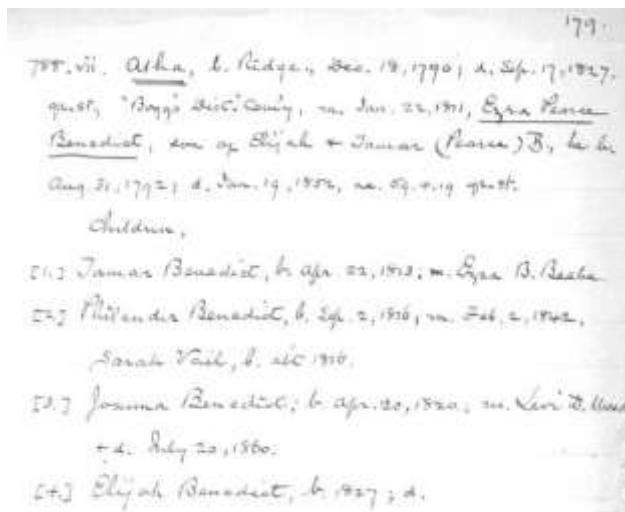 179.
788. vii. Asha, b. Ridge., Dec. 18, 1790; d. Sep. 17, 1827,
gr. st., "Boggs Dist." Cem'y, m. Jan. 22, 1811, Ezra Pearce
Benedict, son of Elijah + Tamar (Pearce) B, he b.
Aug. 31, 1792; d. Jan. 19, 1852, ae. 59.4.19 gr. st.
Children,
[1.] Tamar Benedict, b. Apr. 22, 1813; m. Ezra B. Beebe
[2.] Philander Benedict, b. Sep. 2, 1816, m. Feb. 2, 1842,
Sarah Vail, b. abt 1816.
[3.] Benedict; b. Apr. 20, 1820; m. Levi D.
+ d. July 20, 1860.
[4.] Elijah Benedict, b. 1827; d.